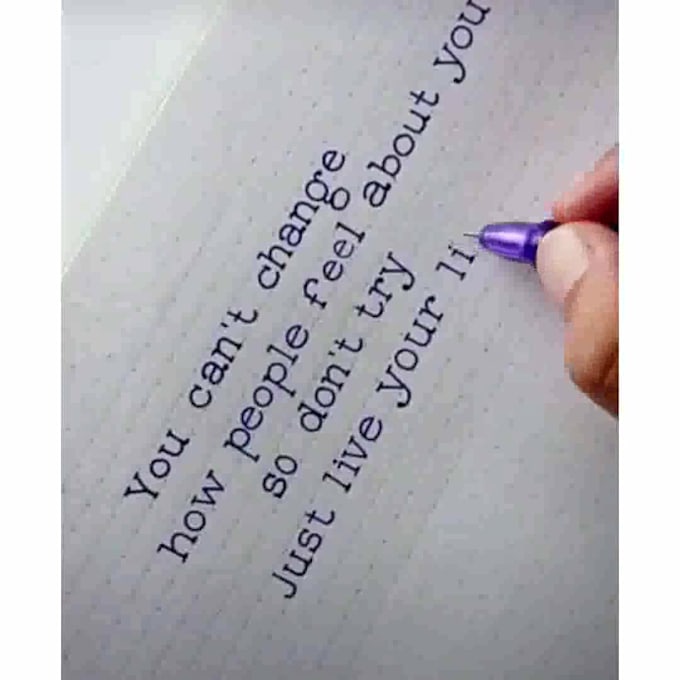 You can't change
how people feel about you
so don't try
Just live your li